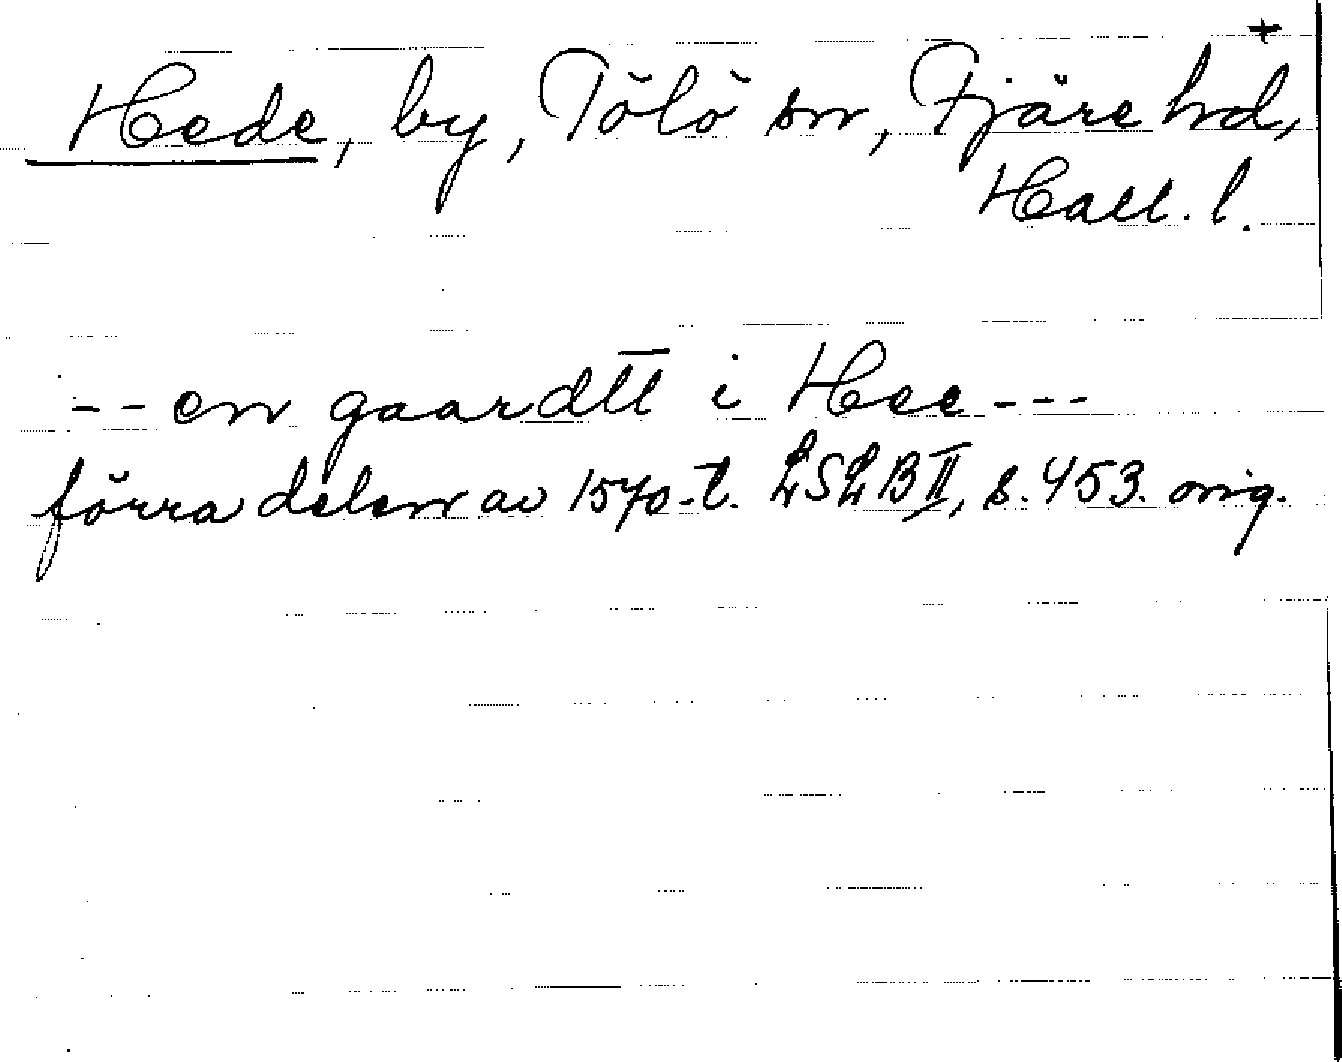 +
Hede, by, Tölö sn, Fjäre hd,
Hall. l.
-- en gaardtt i Hee ---
förra delen av 1570-t. LSLB II, s. 453. orig.